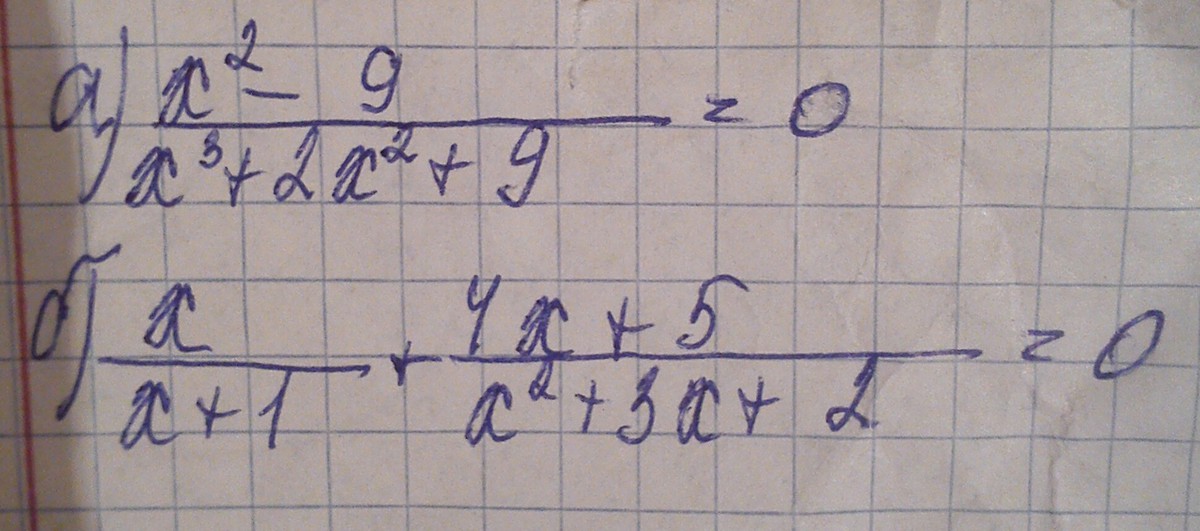 а) (x² - 9)/(x³ + 2x² + 9) = 0
б) x/(x + 1) + (4x + 5)/(x² + 3x + 2) = 0